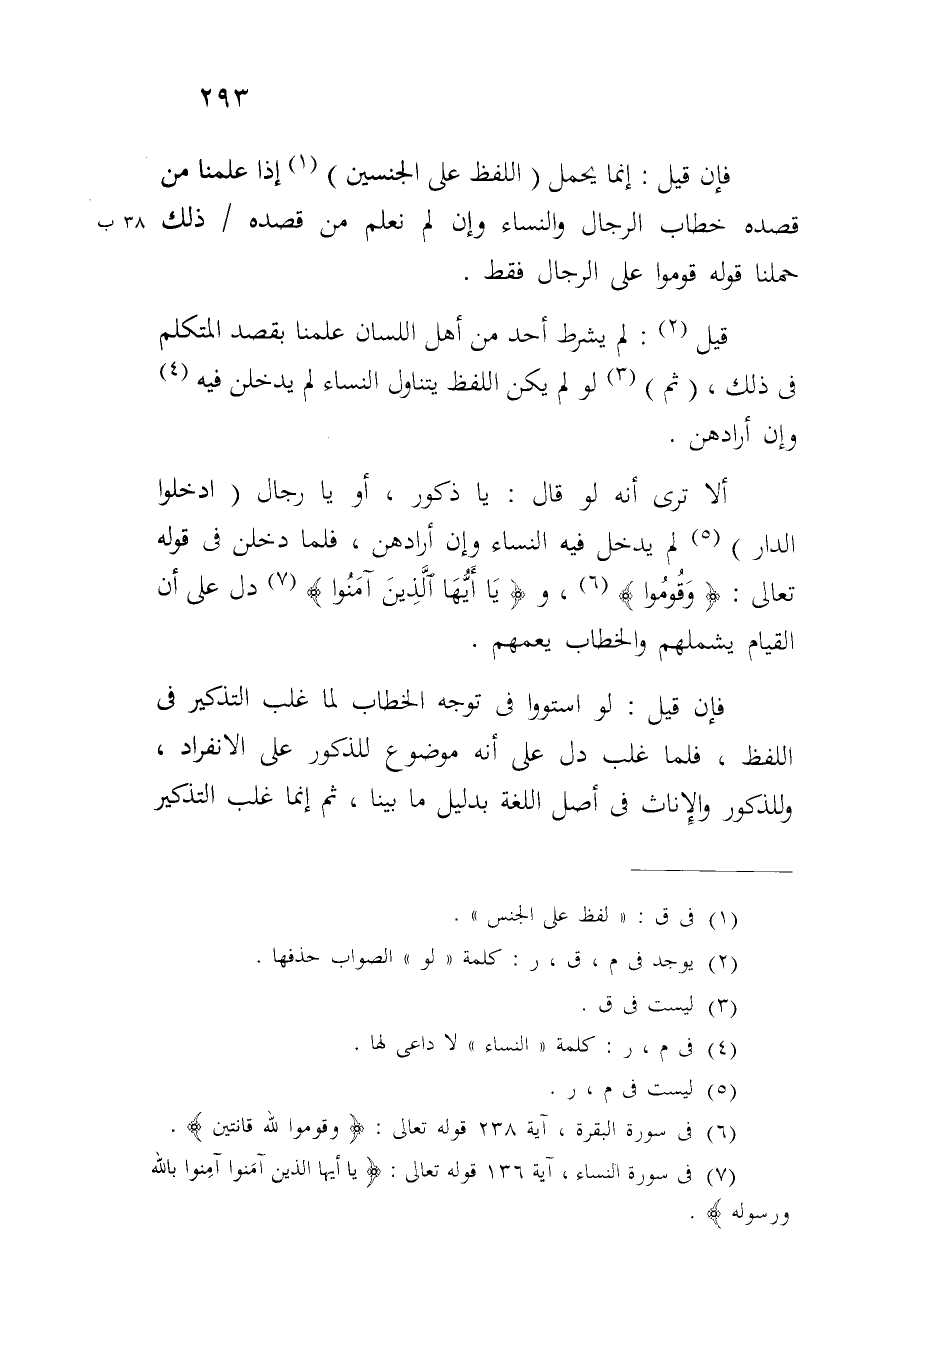 ٢٩٣
فإن قيل : إنما يحمل ( اللفظ على الجنسين ) (١) إذا علمنا من
قصده خطاب الرجال والنساء وإن لم نعلم من قصده / ذلك ٣٨ ب
حملنا قوله قوموا على الرجال فقط .
قيل (٢) : لم يشرط أحد من أهل اللسان علمنا بقصد المتكلم
فى ذلك ، ( ثم ) (٣) لو لم يكن اللفظ يتناول النساء لم يدخلن فيه (٤)
وإن أرادهن .
ألا ترى أنه لو قال : يا ذكور ، أو يا رجال ( ادخلوا
الدار ) (٥) لم يدخل فيه النساء وإن أرادهن ، فلما دخلن فى قوله
تعالى : ﴿ وَقُومُوا ﴾ (٦) ، و ﴿ يَا أَيُّهَا ٱلَّذِينَ آمَنُوا ﴾ (٧) دل على أن
القيام يشملهم والخطاب يعمهم .
فإن قيل : لو استووا فى توجه الخطاب لما غلب التذكير فى
اللفظ ، فلما غلب دل على أنه موضوع للذكور على الانفراد ،
وللذكور والإناث فى أصل اللغة بدليل ما بينا ، ثم إنما غلب التذكير
(١) فى ق : « لفظ على الجنس » .
(٢) يوجد فى م ، ق ، ر : كلمة « لو » الصواب حذفها .
(٣) ليست فى ق .
(٤) فى م ، ر : كلمة « النساء » لا داعى لها .
(٥) ليست فى م ، ر .
(٦) فى سورة البقرة ، آية ٢٣٨ قوله تعالى : ﴿ وقوموا لله قانتين ﴾ .
(٧) فى سورة النساء ، آية ١٣٦ قوله تعالى : ﴿ يا أيها الذين آمَنوا آمِنوا بالله
ورسوله ﴾ .